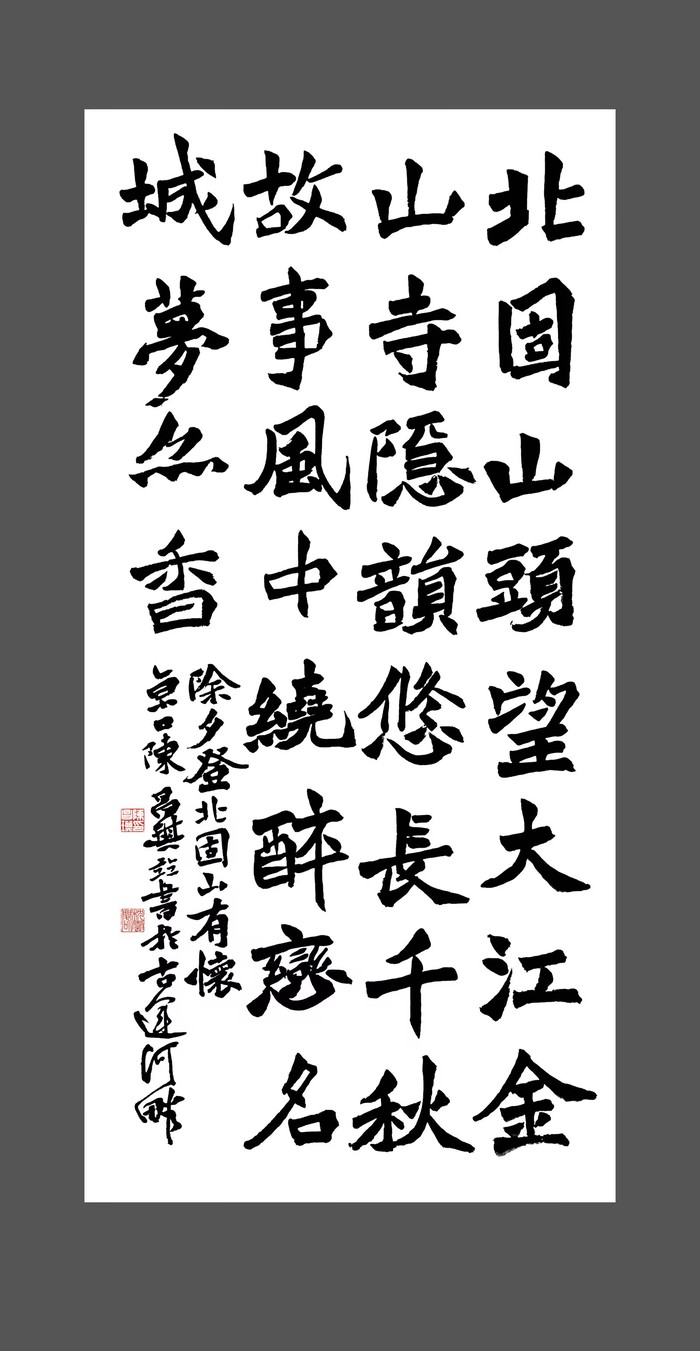 北固山頭望大江金
山寺隱韻悠長千秋
故事風中繞醉戀名
城夢亦香
除夕登北固山有懷
京口陳昌書於古運河畔